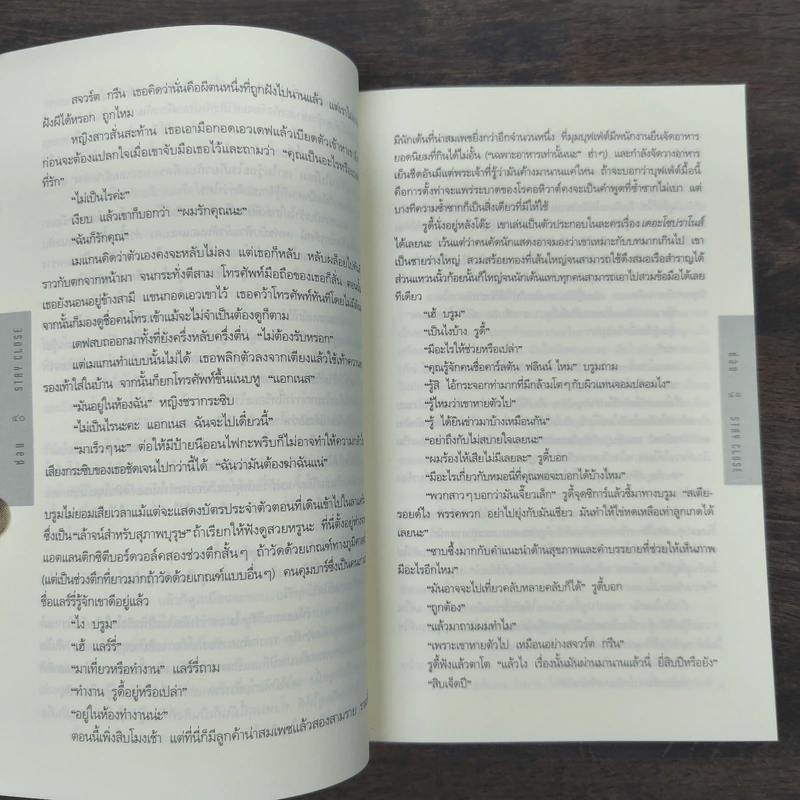 สจวร์ต กรีน เธอคิดว่านั่นคือผีตนหนึ่งที่ถูกฝังไปนานแล้ว แต่เราไม่
ฝังผีได้หรอก ถูกไหม
หญิงสาวสั่นสะท้าน เธอเอามือกอดเอวเดฟแล้วเบียดตัวเข้าหา
ก่อนจะต้องแปลกใจเมื่อเขาจับมือเธอไว้และถามว่า “คุณเป็นอะไรหรือ
ที่รัก”
“ไม่เป็นไรค่ะ”
เงียบ แล้วเขาก็บอกว่า “ผมรักคุณนะ”
“ฉันก็รักคุณ”
เมแกนคิดว่าตัวเองคงจะหลับไม่ลง แต่เธอก็หลับ หลับผล็อยไป
ราวกับตกจากหน้าผา จนกระทั่งตีสาม โทรศัพท์มือถือของเธอก็สั่น ตอนนั้น
เธอยังนอนอยู่ข้างสามี แขนกอดเอวเขาไว้ เธอคว้าโทรศัพท์ทันทีโดยไม่
จากนั้นก็มองดูชื่อคนโทร.เข้าแม้จะไม่จำเป็นต้องดูก็ตาม
เดฟสบถออกมาทั้งที่ยังครึ่งหลับครึ่งตื่น “ไม่ต้องรับหรอก”
แต่เมแกนทำแบบนั้นไม่ได้ เธอพลิกตัวลงจากเตียงแล้วใช้เท้าควาน
รองเท้าใส่ในบ้าน จากนั้นก็ยกโทรศัพท์ขึ้นแนบหู “แอกเนส”
“มันอยู่ในห้องฉัน” หญิงชรากระซิบ
“ไม่เป็นไรนะคะ แอกเนส ฉันจะไปเดี๋ยวนี้”
“มาเร็วๆ นะ” ต่อให้มีป้ายนีออนไฟกะพริบก็ไม่อาจทำให้ความ
เสียงกระซิบของเธอชัดเจนไปกว่านี้ได้ “ฉันว่ามันต้องฆ่าฉันแน่”
บรูมไม่ยอมเสียเวลาแม้แต่จะแสดงบัตรประจำตัวตอนที่เดินเข้าไปใน
ซึ่งเป็น “เล้าจน์สำหรับสุภาพบุรุษ” ถ้าเรียกให้ฟังดูสวยหรูนะ ที่นี่ตั้งอยู่ห่าง
แอตแลนติกซิตีบอร์ดวอล์คสองช่วงตึกสั้นๆ ถ้าวัดด้วยเกณฑ์ทางภูมิศาสตร์
(แต่เป็นช่วงตึกที่ยาวมากถ้าวัดด้วยเกณฑ์แบบอื่นๆ) คนคุมบาร์ซึ่งเป็นคน
ชื่อแลร์รี่รู้จักเขาดีอยู่แล้ว
“ไง บรูม”
“เฮ้ แลร์รี่”
“มาเที่ยวหรือทำงาน” แลร์รี่ถาม
“ทำงาน รูดี้อยู่หรือเปล่า”
“อยู่ในห้องทำงานน่ะ”
ตอนนี้เพิ่งสิบโมงเช้า แต่ที่นี่ก็มีลูกค้าน่าสมเพชแล้วสองสามราย
STAY CLOSE
มีนักเต้นที่น่าสมเพชยิ่งกว่าอีกจำนวนหนึ่ง ที่มุมบุฟเฟ่ต์มีพนักงานยืนจัดอาหาร
ยอดนิยมที่กินได้ไม่อั้น (“เฉพาะอาหารเท่านั้นนะ” ฮ่าๆ) และกำลังจัดวางอาหาร
เย็นชืดอันมีแต่พระเจ้าที่รู้ว่ามันค้างมานานแค่ไหน ถ้าจะบอกว่าบุฟเฟ่ต์มื้อนี้
คือการตั้งท่าจะแพร่ระบาดของโรคอหิวาต์คงจะเป็นคำพูดที่ซ้ำซากไม่เบา แต่
บางทีความซ้ำซากก็เป็นสิ่งเดียวที่มีให้ใช้
รูดี้นั่งอยู่หลังโต๊ะ เขาเล่นเป็นตัวประกอบในละครเรื่อง เดอะโซปราโนส์
ได้เลยนะ เว้นแต่ว่าคนคัดนักแสดงอาจมองว่าเขาเหมาะกับบทมากเกินไป เขา
เป็นชายร่างใหญ่ สวมสร้อยทองที่เส้นใหญ่จนสามารถใช้ดึงสมอเรือสำราญได้
ส่วนแหวนนิ้วก้อยนั้นก็ใหญ่จนนักเต้นแทบทุกคนสามารถเอาไปสวมข้อมือได้เลย
ทีเดียว
“เฮ้ บรูม”
“เป็นไงบ้าง รูดี้”
“มีอะไรให้ช่วยหรือเปล่า”
“คุณรู้จักคนชื่อคาร์ลตัน ฟลินน์ ไหม” บรูมถาม
“รู้สิ ไอ้กระจอกทำมากที่มีกล้ามโตๆ กับผิวแทนจอมปลอมไง”
“รู้ไหมว่าเขาหายตัวไป”
“รู้ ได้ยินข่าวมาบ้างเหมือนกัน”
“อย่าถึงกับไม่สบายใจเลยนะ”
“ผมร้องไห้เสียไม่มีเลยละ” รูดี้บอก
“มีอะไรเกี่ยวกับหมอนี่ที่คุณพอจะบอกได้บ้างไหม”
“พวกสาวๆ บอกว่ามันเจี๊ยวเล็ก” รูดี้จุดซิการ์แล้วชี้มาทางบรูม “สเตีย-
รอยด์ไง พรรคพวก อย่าไปยุ่งกับมันเชียว มันทำให้ไข่หดเหลือเท่าลูกเกดได้
เลยนะ”
“ซาบซึ้งมากกับคำแนะนำด้านสุขภาพและคำบรรยายที่ช่วยให้เห็นภาพ
มีอะไรอีกไหม”
“มันอาจจะไปเที่ยวคลับหลายคลับก็ได้” รูดี้บอก
“ถูกต้อง”
“แล้วมาถามผมทำไม”
“เพราะเขาหายตัวไป เหมือนอย่างสจวร์ต กรีน”
รูดี้ฟังแล้วตาโต “แล้วไง เรื่องนั้นมันผ่านมานานแล้วนี่ ยี่สิบปีหรือยัง”
“สิบเจ็ดปี”
STAY CLOSE